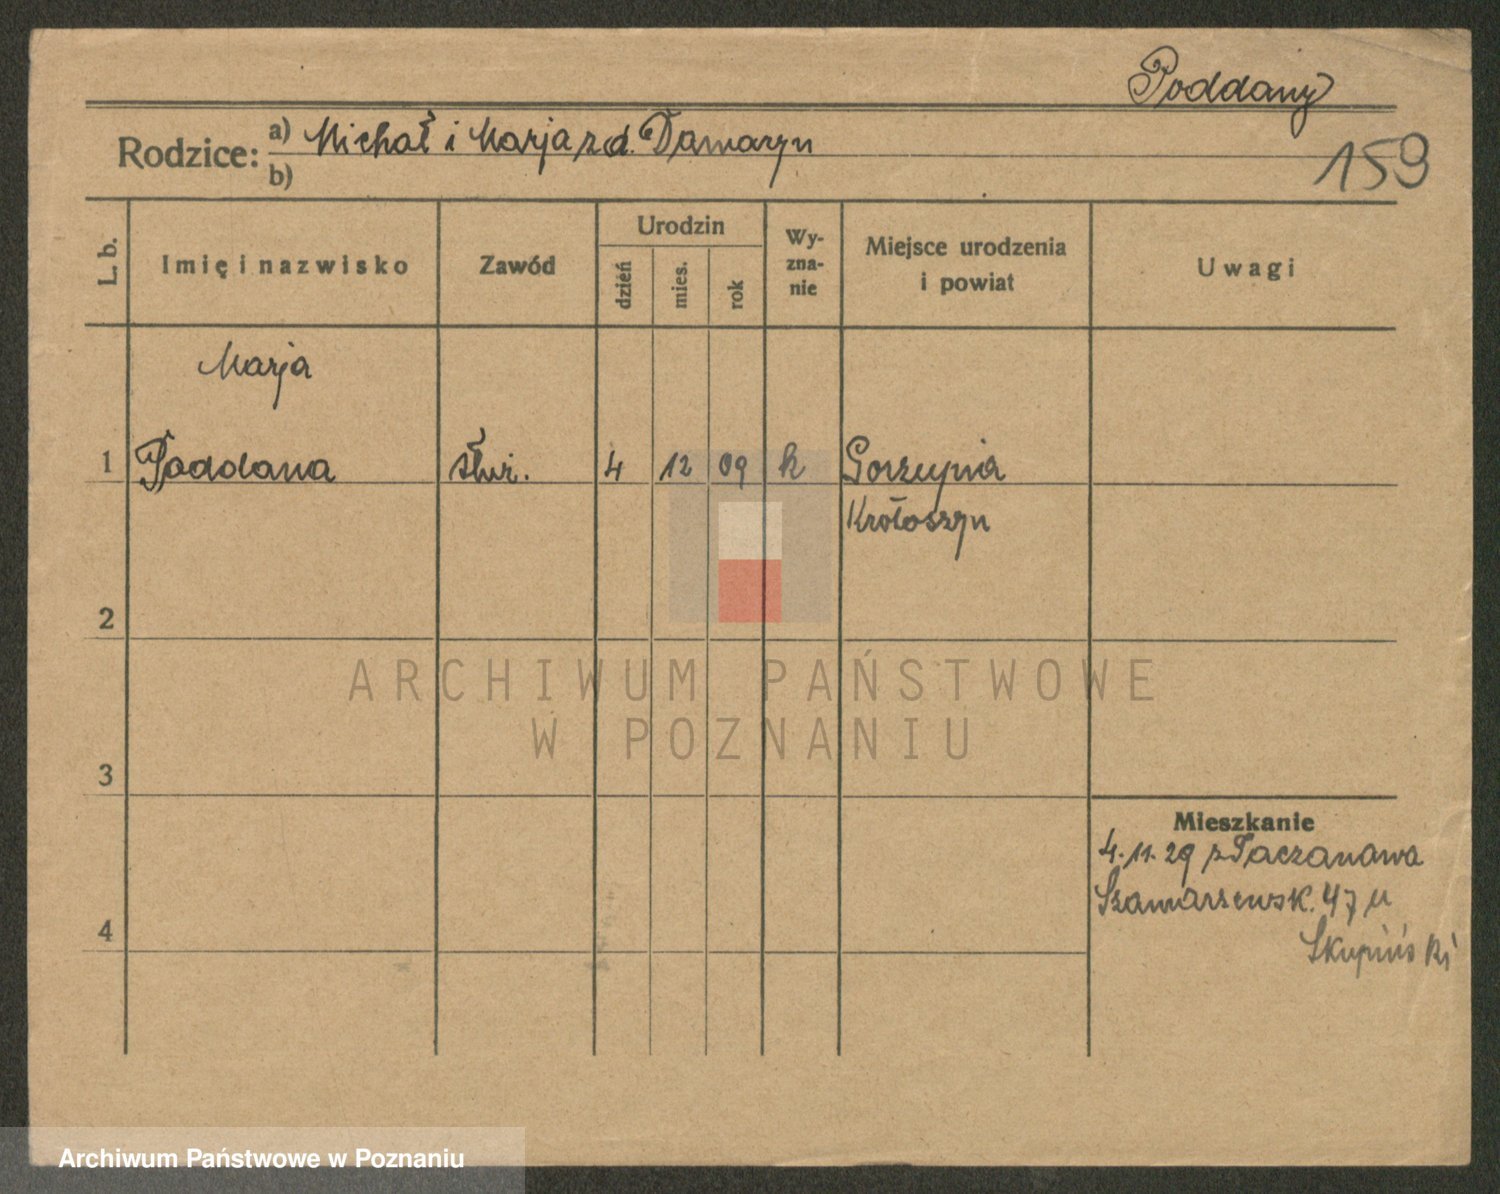 Poddany
Rodzice: a) Michał i Marja z d. Damazyn
b)
159
L. b.
Imię i nazwisko
Zawód
Urodzin
dzień
mies.
rok
Wy-
zna-
nie
Miejsce urodzenia
i powiat
Uwagi
Marja
1 Poddana służ. 4 12 09 k Gorzupia
Krotoszyn
2
3
4
Mieszkanie
4.11.29 z Taczanowa
Szamarzewsk. 47 u
Skupiński
ARCHIWUM PAŃSTWOWE
W POZNANIU
Archiwum Państwowe w Poznaniu